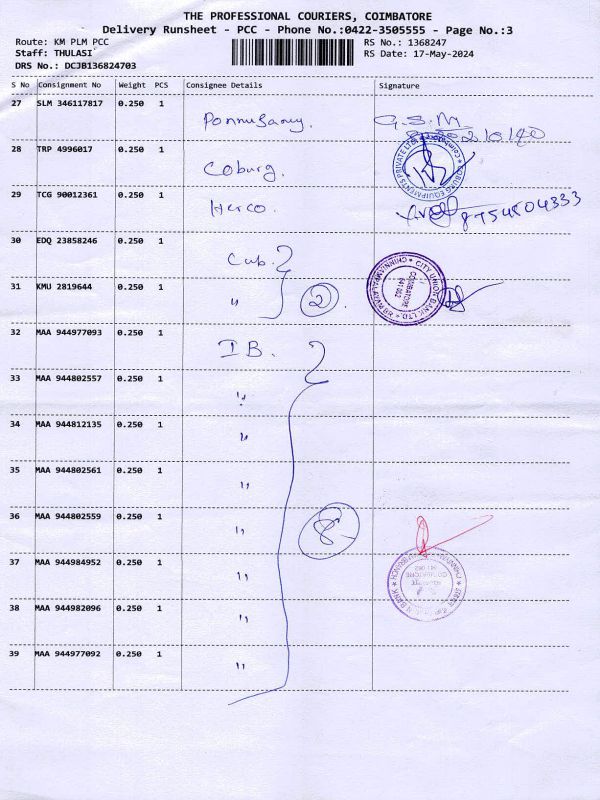 THE PROFESSIONAL COURIERS, COIMBATORE
Delivery Runsheet - PCC - Phone No.:0422-3505555 - Page No.:3
Route: KM PLM PCC
Staff: THULASI
DRS No.: DCJB136824703
RS No.: 1368247
RS Date: 17-May-2024
S No Consignment No Weight PCS Consignee Details Signature
27 SLM 346117817 0.250 1 Ponnusamy. G.S.M
28 TRP 4996017 0.250 1 Coburg. COBURG EQUIPMENTS PRIVATE LTD
29 TCG 90012361 0.250 1 Herco.
30 EDQ 23858246 0.250 1 Cub.
31 KMU 2819644 0.250 1 " 2 CITY UNION BANK LTD. COIMBATORE 641 062
32 MAA 944977093 0.250 1 IB.
33 MAA 944802557 0.250 1 "
34 MAA 944812135 0.250 1 "
35 MAA 944802561 0.250 1 "
36 MAA 944802559 0.250 1 " 8
37 MAA 944984952 0.250 1 " COIMBATORE 641 062
38 MAA 944982096 0.250 1 "
39 MAA 944977092 0.250 1 "